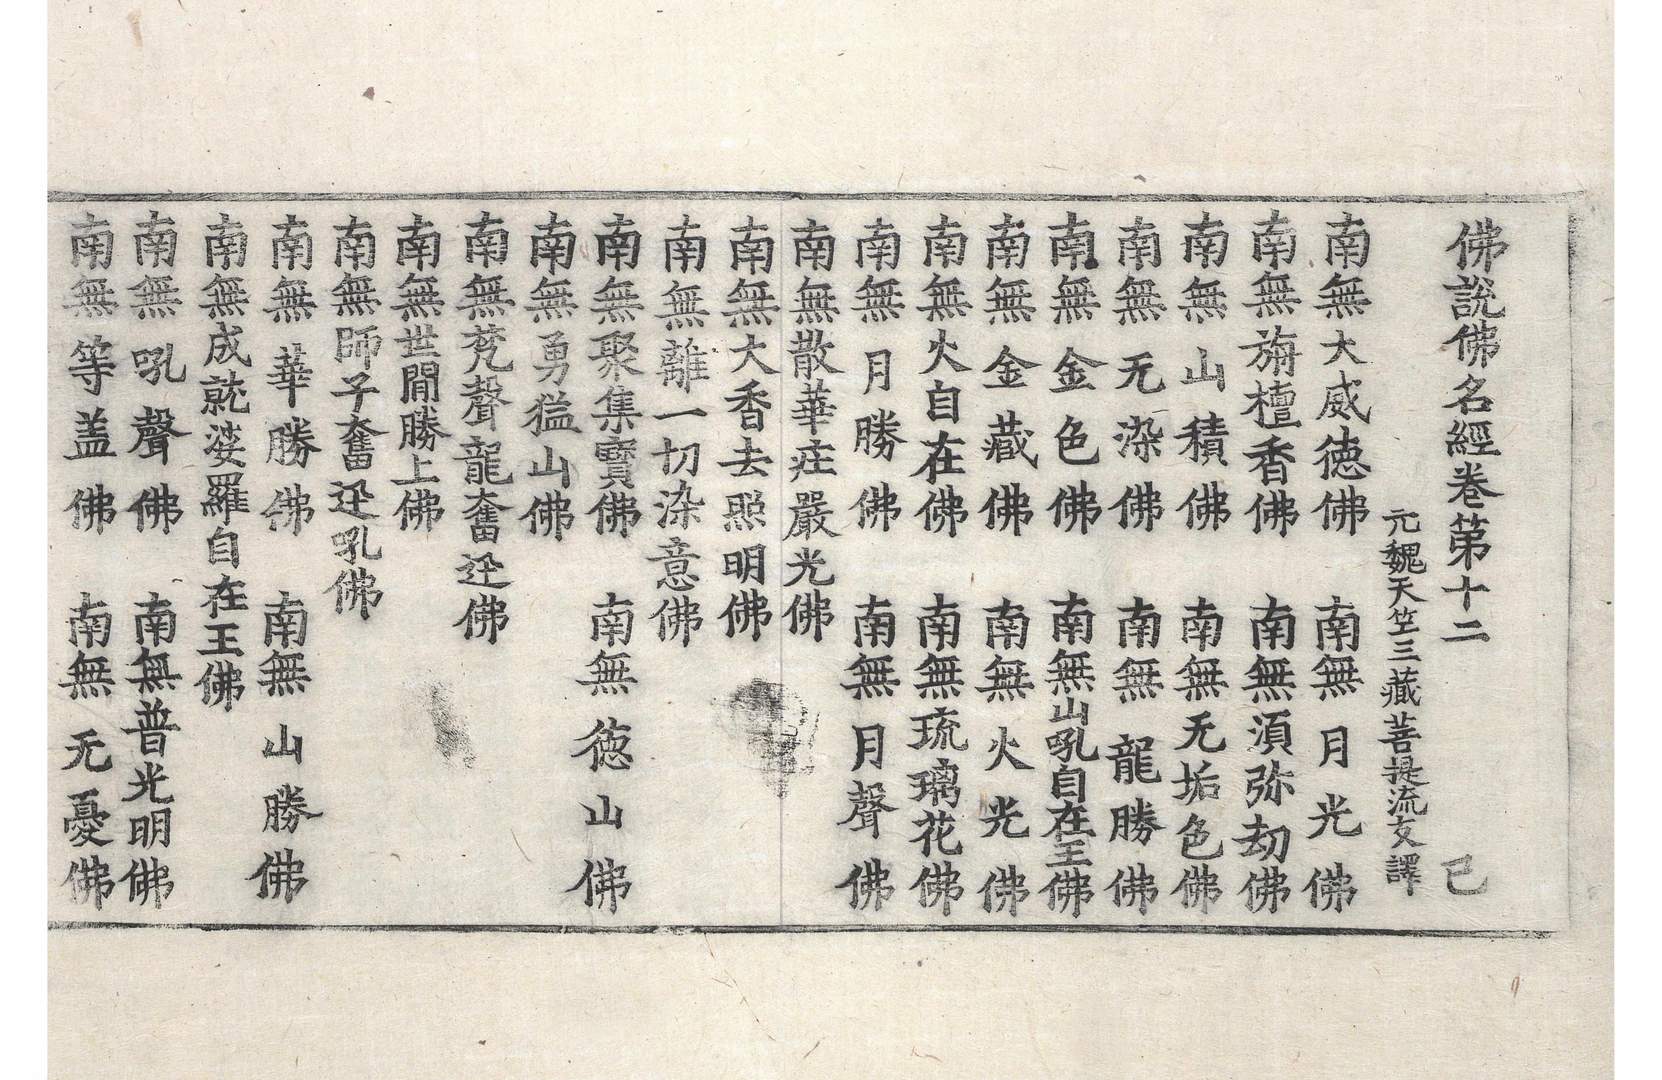 佛說佛名經卷第十二　己
元魏天竺三藏菩提流支譯
南無大威德佛　南無月光佛
南無旃檀香佛　南無湏弥劫佛
南無山積佛　南無无垢色佛
南無无染佛　南無龍勝佛
南無金色佛　南無山吼自在王佛
南無金藏佛　南無火光佛
南無火自在佛　南無琉璃花佛
南無月勝佛　南無月聲佛
南無散華庄嚴光佛
南無大香去照明佛
南無離一切染意佛
南無聚集寶佛　南無德山佛
南無勇猛山佛
南無梵聲龍奮迅佛
南無世閒勝上佛
南無師子奮迅吼佛
南無華勝佛　南無山勝佛
南無成就娑羅自在王佛
南無吼聲佛　南無普光明佛
南無等盖佛　南無无憂佛